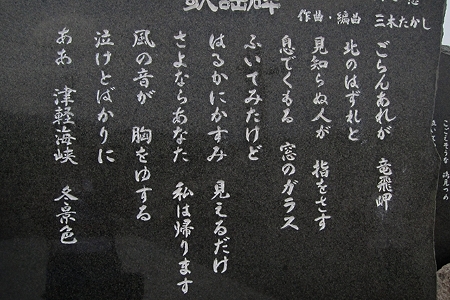 歌謡碑
作曲・編曲 三木たかし
ごらんあれが 竜飛岬
北のはずれと
見知らぬ人が 指をさす
息でくもる 窓のガラス
ふいてみたけど
はるかにかすみ 見えるだけ
さよならあなた 私は帰ります
風の音が 胸をゆする
泣けとばかりに
ああ 津軽海峡 冬景色